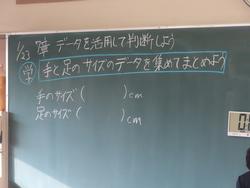 1/23 データを活用して判断しよう
学 手と足のサイズのデータを集めてまとめよう
手のサイズ( )cm
足のサイズ( )cm